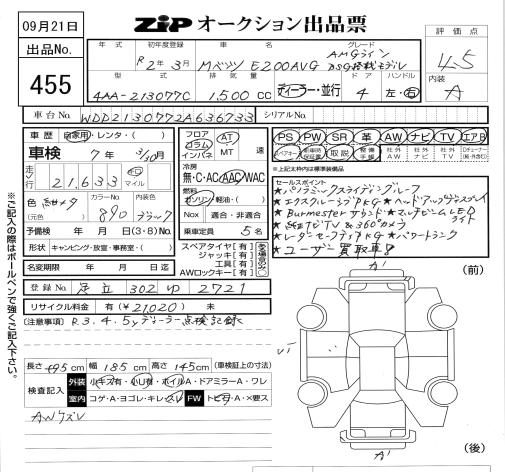 09月21日
ZiP オークション出品票
出品No.
455
評価点
4.5
内装
A
年式 初年度登録 車名 グレード
R2年3月 Mベンツ E200AVG AMGライン BSG搭載モデル
型式 排気量 ドア ハンドル
4AA-213077C 1,500cc ディーラー・並行 4 左・右
車台No. WDD2130772A636733 シリアルNo.
車歴 自家用・レンタ・( )
車検 7年3/30月
走行 21,633 キロ マイル
色 (元色) カラーNo. 890 ブラック
予備検 年 月 日(3・8)No.
形状 キャンピング・放室・事務室・( )
名変期限 年 月 日迄
登録No. 足立 302 ゆ 2721
リサイクル料金 有(¥21,020) 未
フロア コラム インパネ AT MT 速
冷房 無・C・AC AAC WAC
燃料 ガソリン 軽油・( )
Nox 適合・非適合
乗車定員 5名
スペアタイヤ[有]
ジャッキ[有]
工具[有]
AWロックキー[有]
PS PW SR 革 AW ナビ TV エアB
スペアキー 取説 整備手帳 社外AW 社外ナビ 社外TV
※上記太枠内は標準装備品
セールスポイント
★パノラミックスライディングルーフ
★エクスクルーシブPKG★ヘッドアップディスプレイ
★Burmesterサウンド★マルチビームLEDライト
★純正ナビTV&360°カメラ
★レーダーセーフティPKG★パワートランク
★ユーザー買取車!
(注意事項) R.3.4.5yディーラー点検記録
長さ 495cm 幅 185cm 高さ 145cm (車検証上の寸法)
検査記入 外装 小キズ有・小U有・ホイルA・ドアミラーA・ワレ
室内 コゲ・A・ヨゴレ・キレ・ズレ FW トビ石・A・×要ス
AWスリ
※ご記入の際はボールペンで強くご記入下さい。
(前)
(後)